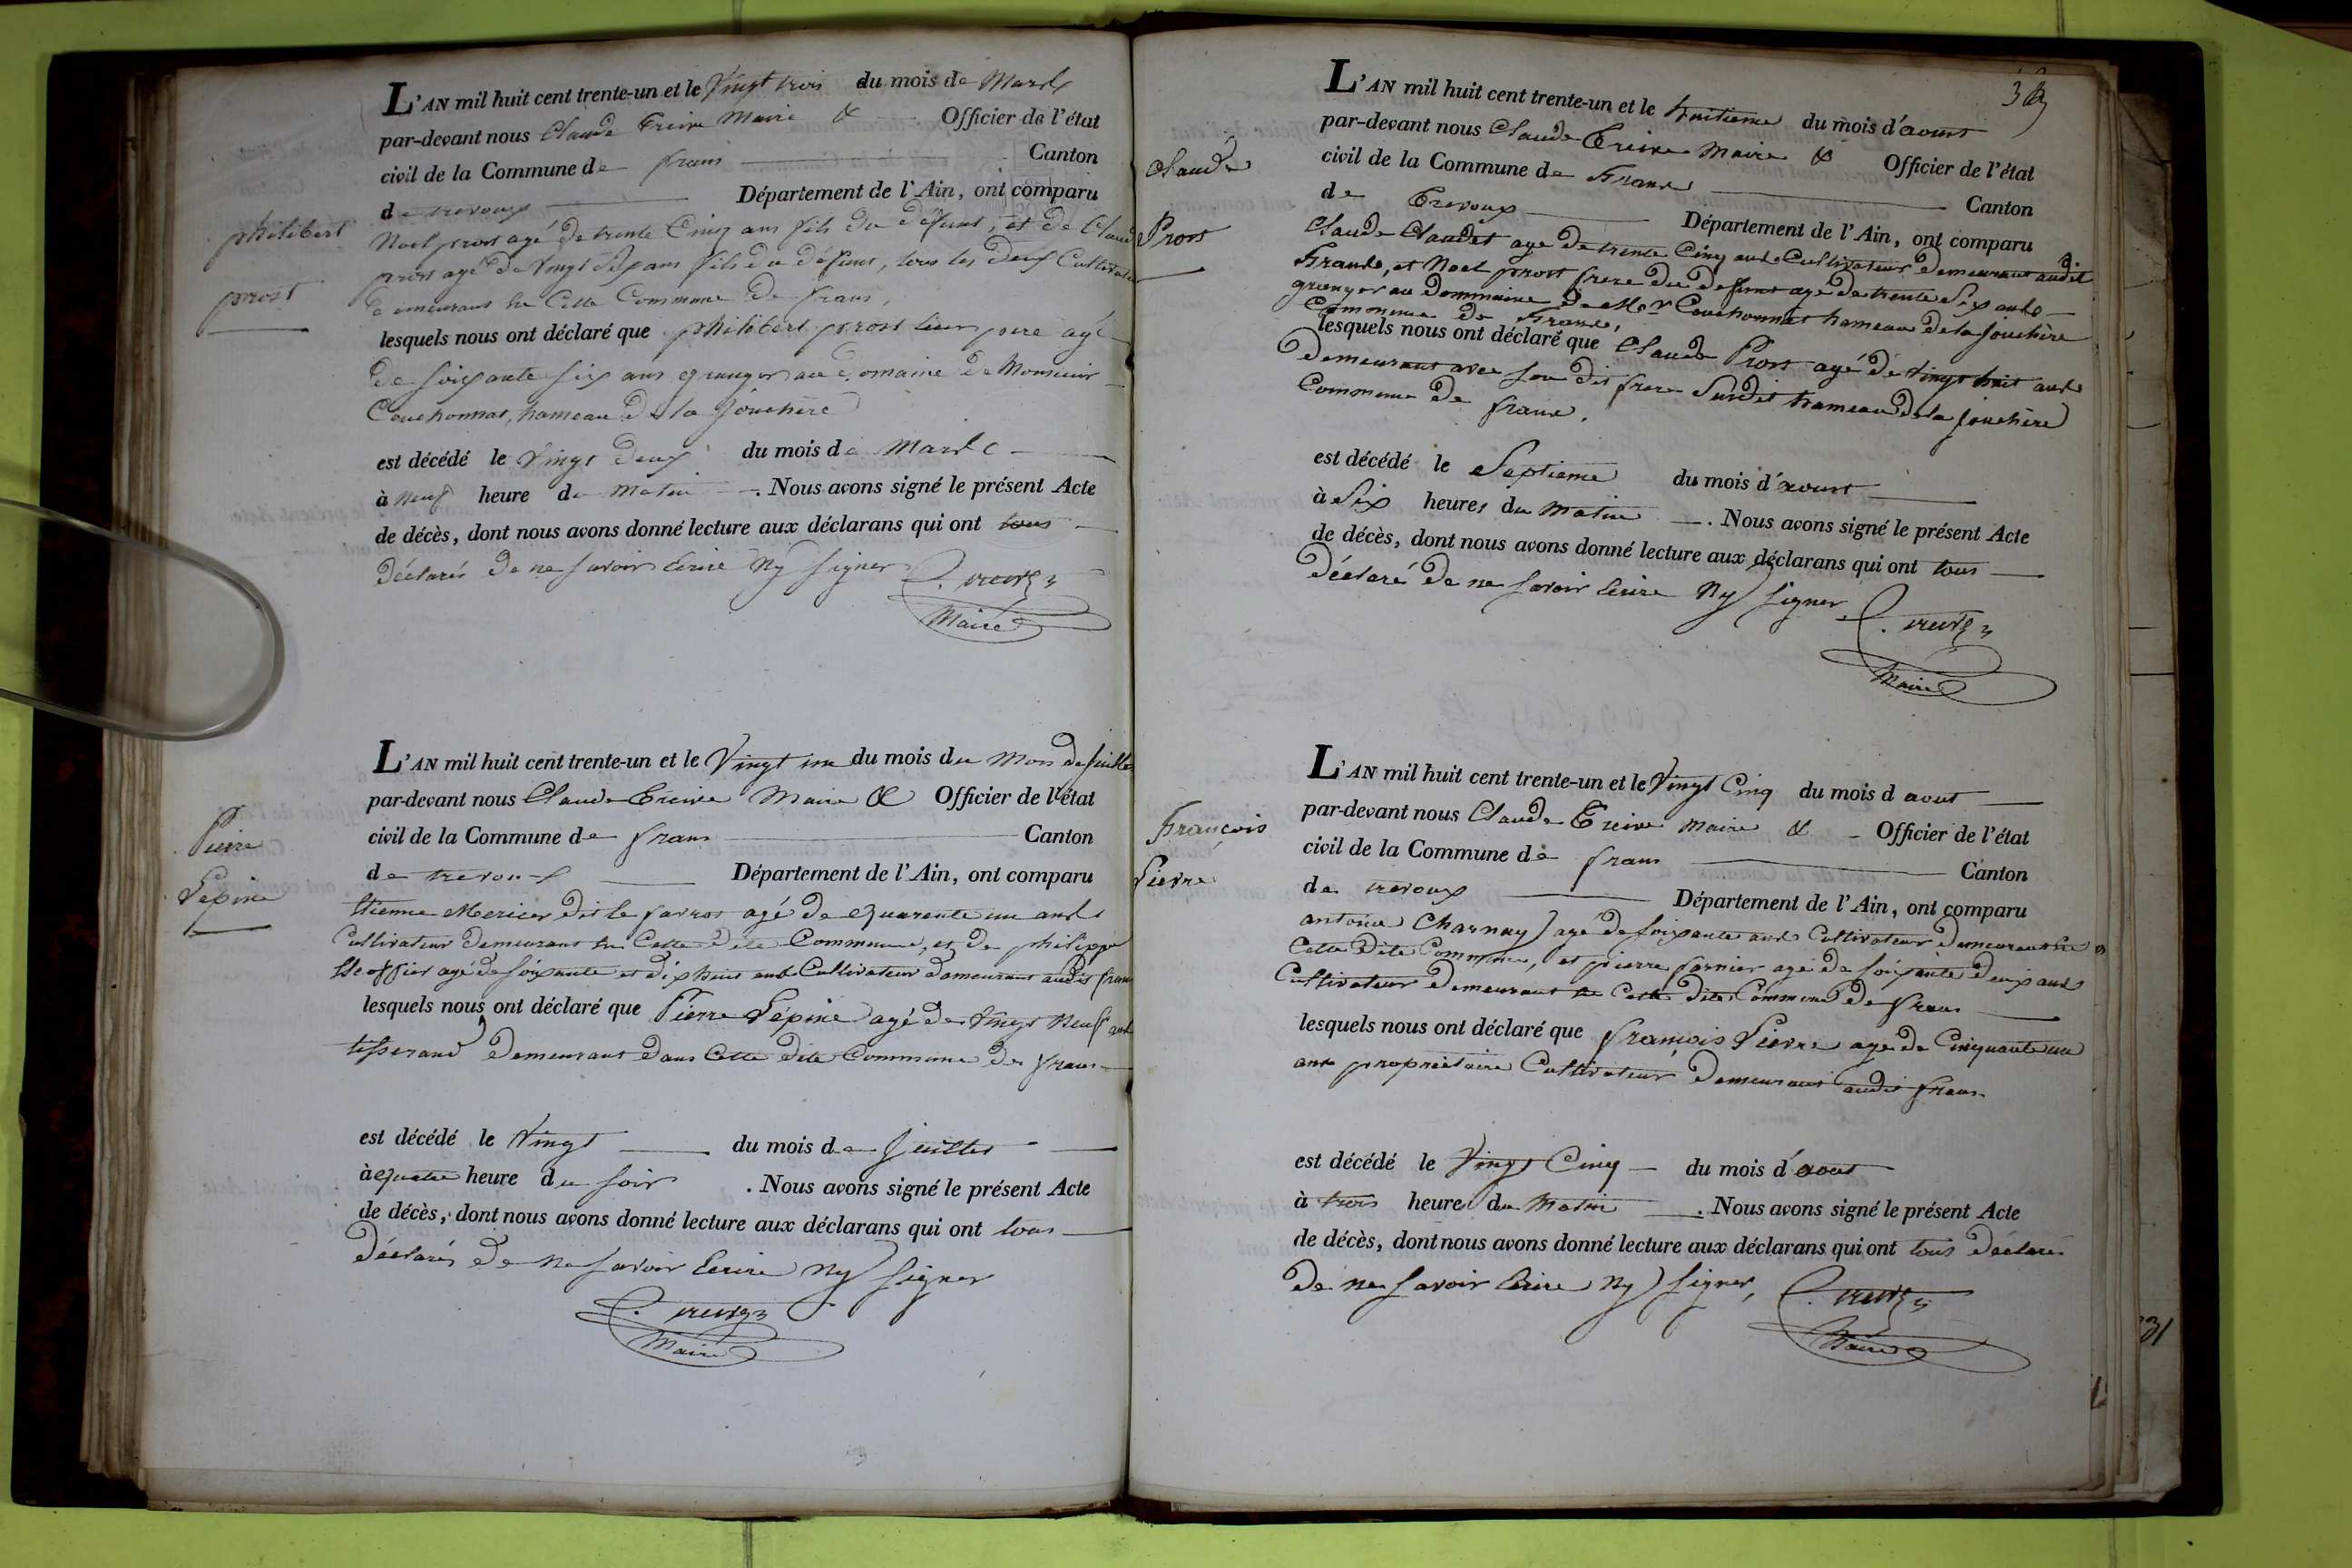 L'AN mil huit cent trente-un et le Vingt trois du mois de Mars
par-devant nous Claude Treive Maire & Officier de l'état
civil de la Commune de frans Canton
de trevoux Département de l'Ain, ont comparu
philibert
prost
Noel prost agé de trente Cinq ans fils du défunt, et de Claude
prost agé de Vingt Six ans fils du défunt, tous les deux Cultivateur
demeurant en Cette Commune de frans,
lesquels nous ont déclaré que philibert prost leur pere agé
de soixante six ans granger au domaine de Monsieur
Couchonnat, hameau de la jouchère
est décédé le Vingt deux du mois de Mars
à neuf heure du matin . Nous avons signé le présent Acte
de décès, dont nous avons donné lecture aux déclarans qui ont tous
déclarés de ne savoir Ecrire Ny signer C. treive
Maire
L'AN mil huit cent trente-un et le Vingt un du mois du Mois de juillet
par-devant nous Claude Treive Maire & Officier de l'état
civil de la Commune de frans Canton
de trevoux Département de l'Ain, ont comparu
Pierre
Lépine
Etienne Mericer dit le farros agé de quarente un ans
Cultivateur demeurant en Cette dite Commune, et de philippe
agé de soixante et dix huit ans Cultivateur demeurant audit frans
lesquels nous ont déclaré que Pierre Lépine agé de Vingt Neuf ans
tisserand demeurant dans Cette dite Commune de frans
est décédé le Vingt du mois de Juillet
à quatre heure du soir . Nous avons signé le présent Acte
de décès, dont nous avons donné lecture aux déclarans qui ont tous
déclarés de ne savoir Ecrire Ny signer
C. treive
Maire
L'AN mil huit cent trente-un et le huitieme du mois d'aoust
par-devant nous Claude Treive Maire & Officier de l'état
civil de la Commune de Frans Canton
de Trevoux Département de l'Ain, ont comparu
Claude
Prost
Claude Claudet age de trente Cinq ans Cultivateur demeurant audit
Frans, et Noel prost frere du defunt agé de trente Six ans
granger au Dommaine de Mr Couchonnat hameau de la jouchère
Commune de Frans,
lesquels nous ont déclaré que Claude Prost agé de Vingt huit ans
demeurant avec son dit frere Susdit hameau de la jouchère
Commune de frans,
est décédé le Septieme du mois d'aoust
à Six heures du Matin . Nous avons signé le présent Acte
de décès, dont nous avons donné lecture aux déclarans qui ont tous
déclaré de ne savoir Ecrire Ny signer C. treive
Maire
L'AN mil huit cent trente-un et le Vingt Cinq du mois d aout
par-devant nous Claude Treive Maire & Officier de l'état
civil de la Commune de frans Canton
de trevoux Département de l'Ain, ont comparu
François
Pierre
antoine Charnay agé de soixante ans Cultivateur demeurant en
Cette dite Commune, et pierre farnier agé de soixante deux ans
Cultivateur demeurant en Cette dite Commune de frans
lesquels nous ont déclaré que françois Pierre age de Cinquante un
ans propriétaire Cultivateur demeurant audit frans
est décédé le Vingt Cinq du mois d'aout
à trois heures du Matin . Nous avons signé le présent Acte
de décès, dont nous avons donné lecture aux déclarans qui ont tous déclarés
de ne savoir Ecrire Ny signer, C. treive
Maire
31